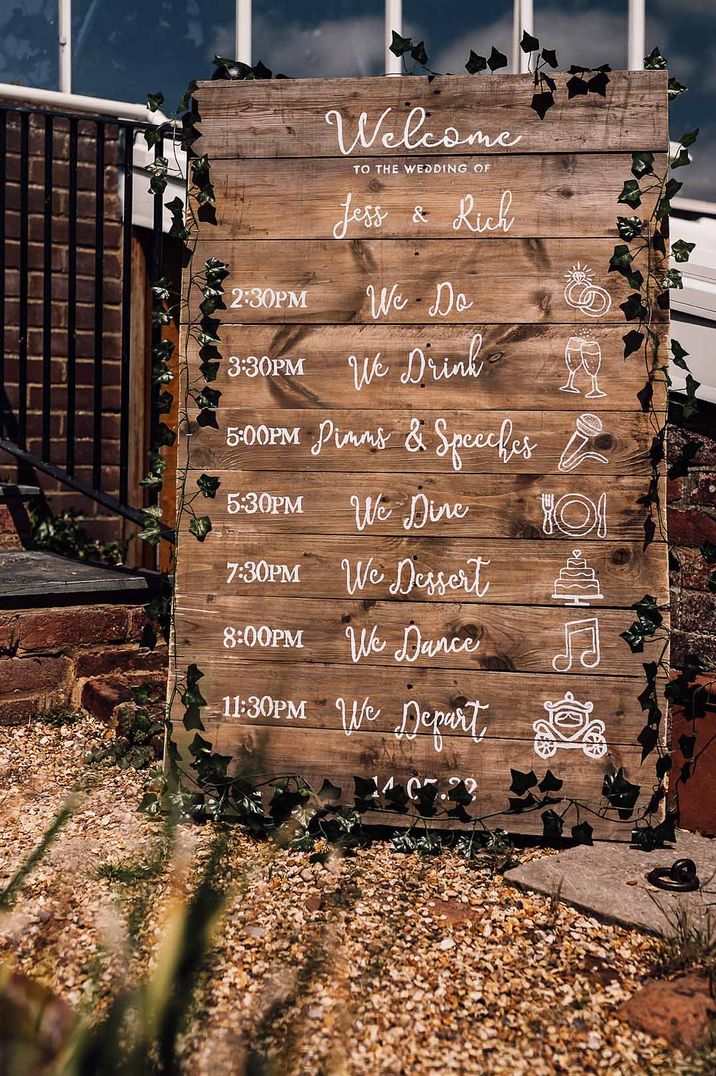 Welcome
TO THE WEDDING OF
Jess & Rich
2:30PM We Do
3:30PM We Drink
5:00PM Pimms & Speeches
5:30PM We Dine
7:30PM We Dessert
8:00PM We Dance
11:30PM We Depart
14.05.22